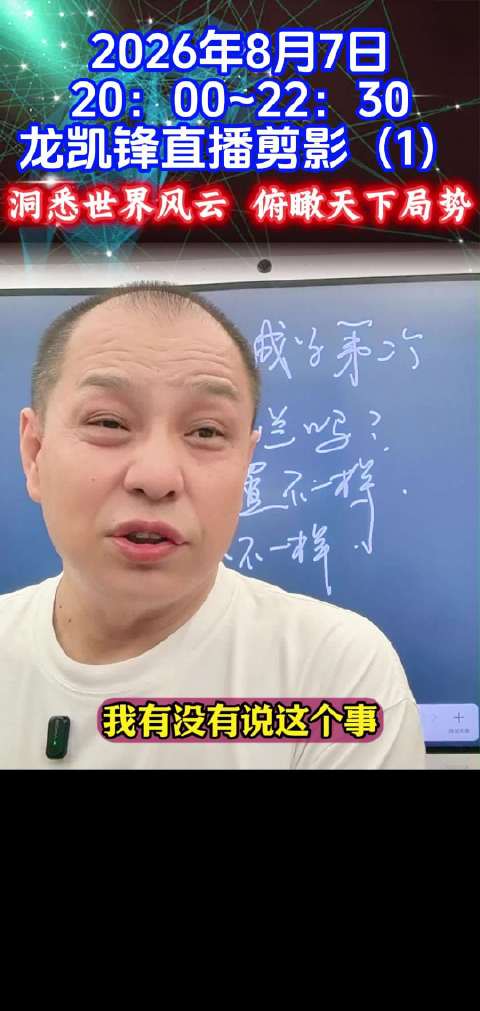 2026年8月7日
20：00~22：30
龙凯锋直播剪影（1）
洞悉世界风云 俯瞰天下局势
成为第二个
兰吗？
置不一样.
不一样.
我有没有说这个事